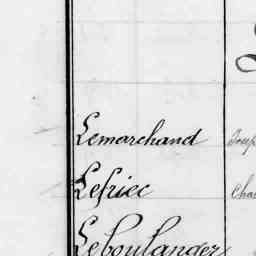 Lemarchand
Lefriec
Leboulanger